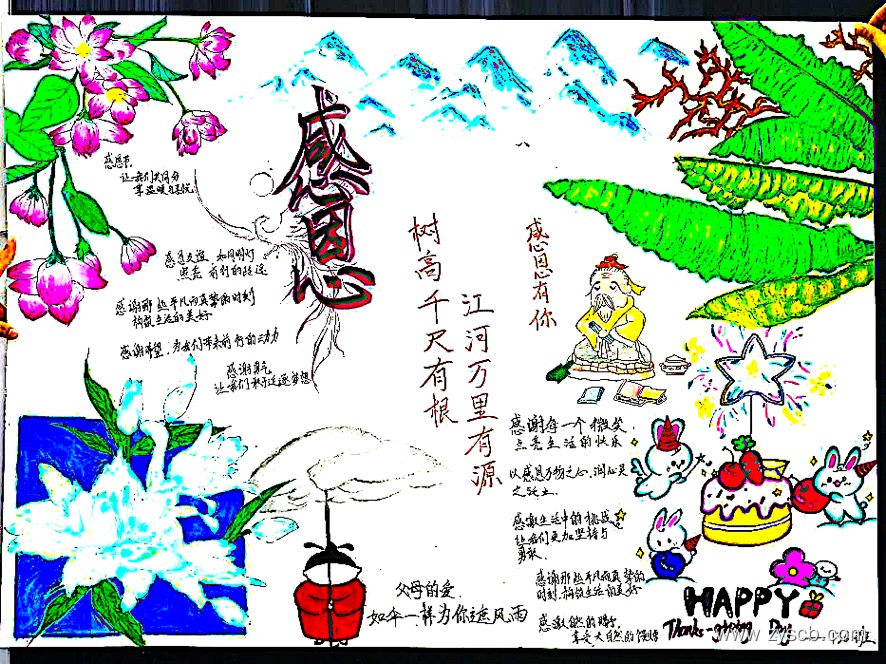 感恩心
感恩有你
树高千尺有根
江河万里有源
感恩节,
让我们共同分
享温暖与喜悦
感恩友谊 如同明灯
照亮 前行的路途
感谢那些平凡而真挚的时刻
构筑生活的美好
感谢希望,为我们带来前行的动力
感谢勇气
让我们敢于追逐梦想
感谢每一个微笑,
点亮生活的快乐
以感恩万物之心,润心灵
之沃土.
感激生活中的挑战,
让我们更加坚韧与
勇敢.
感谢那些平凡而真挚的
时刻,构筑生活的美好
感激自然的赐予,
享受大自然的馈赠
父母的爱.
如伞一样为你遮风雨
HAPPY
Thanks-giving Day